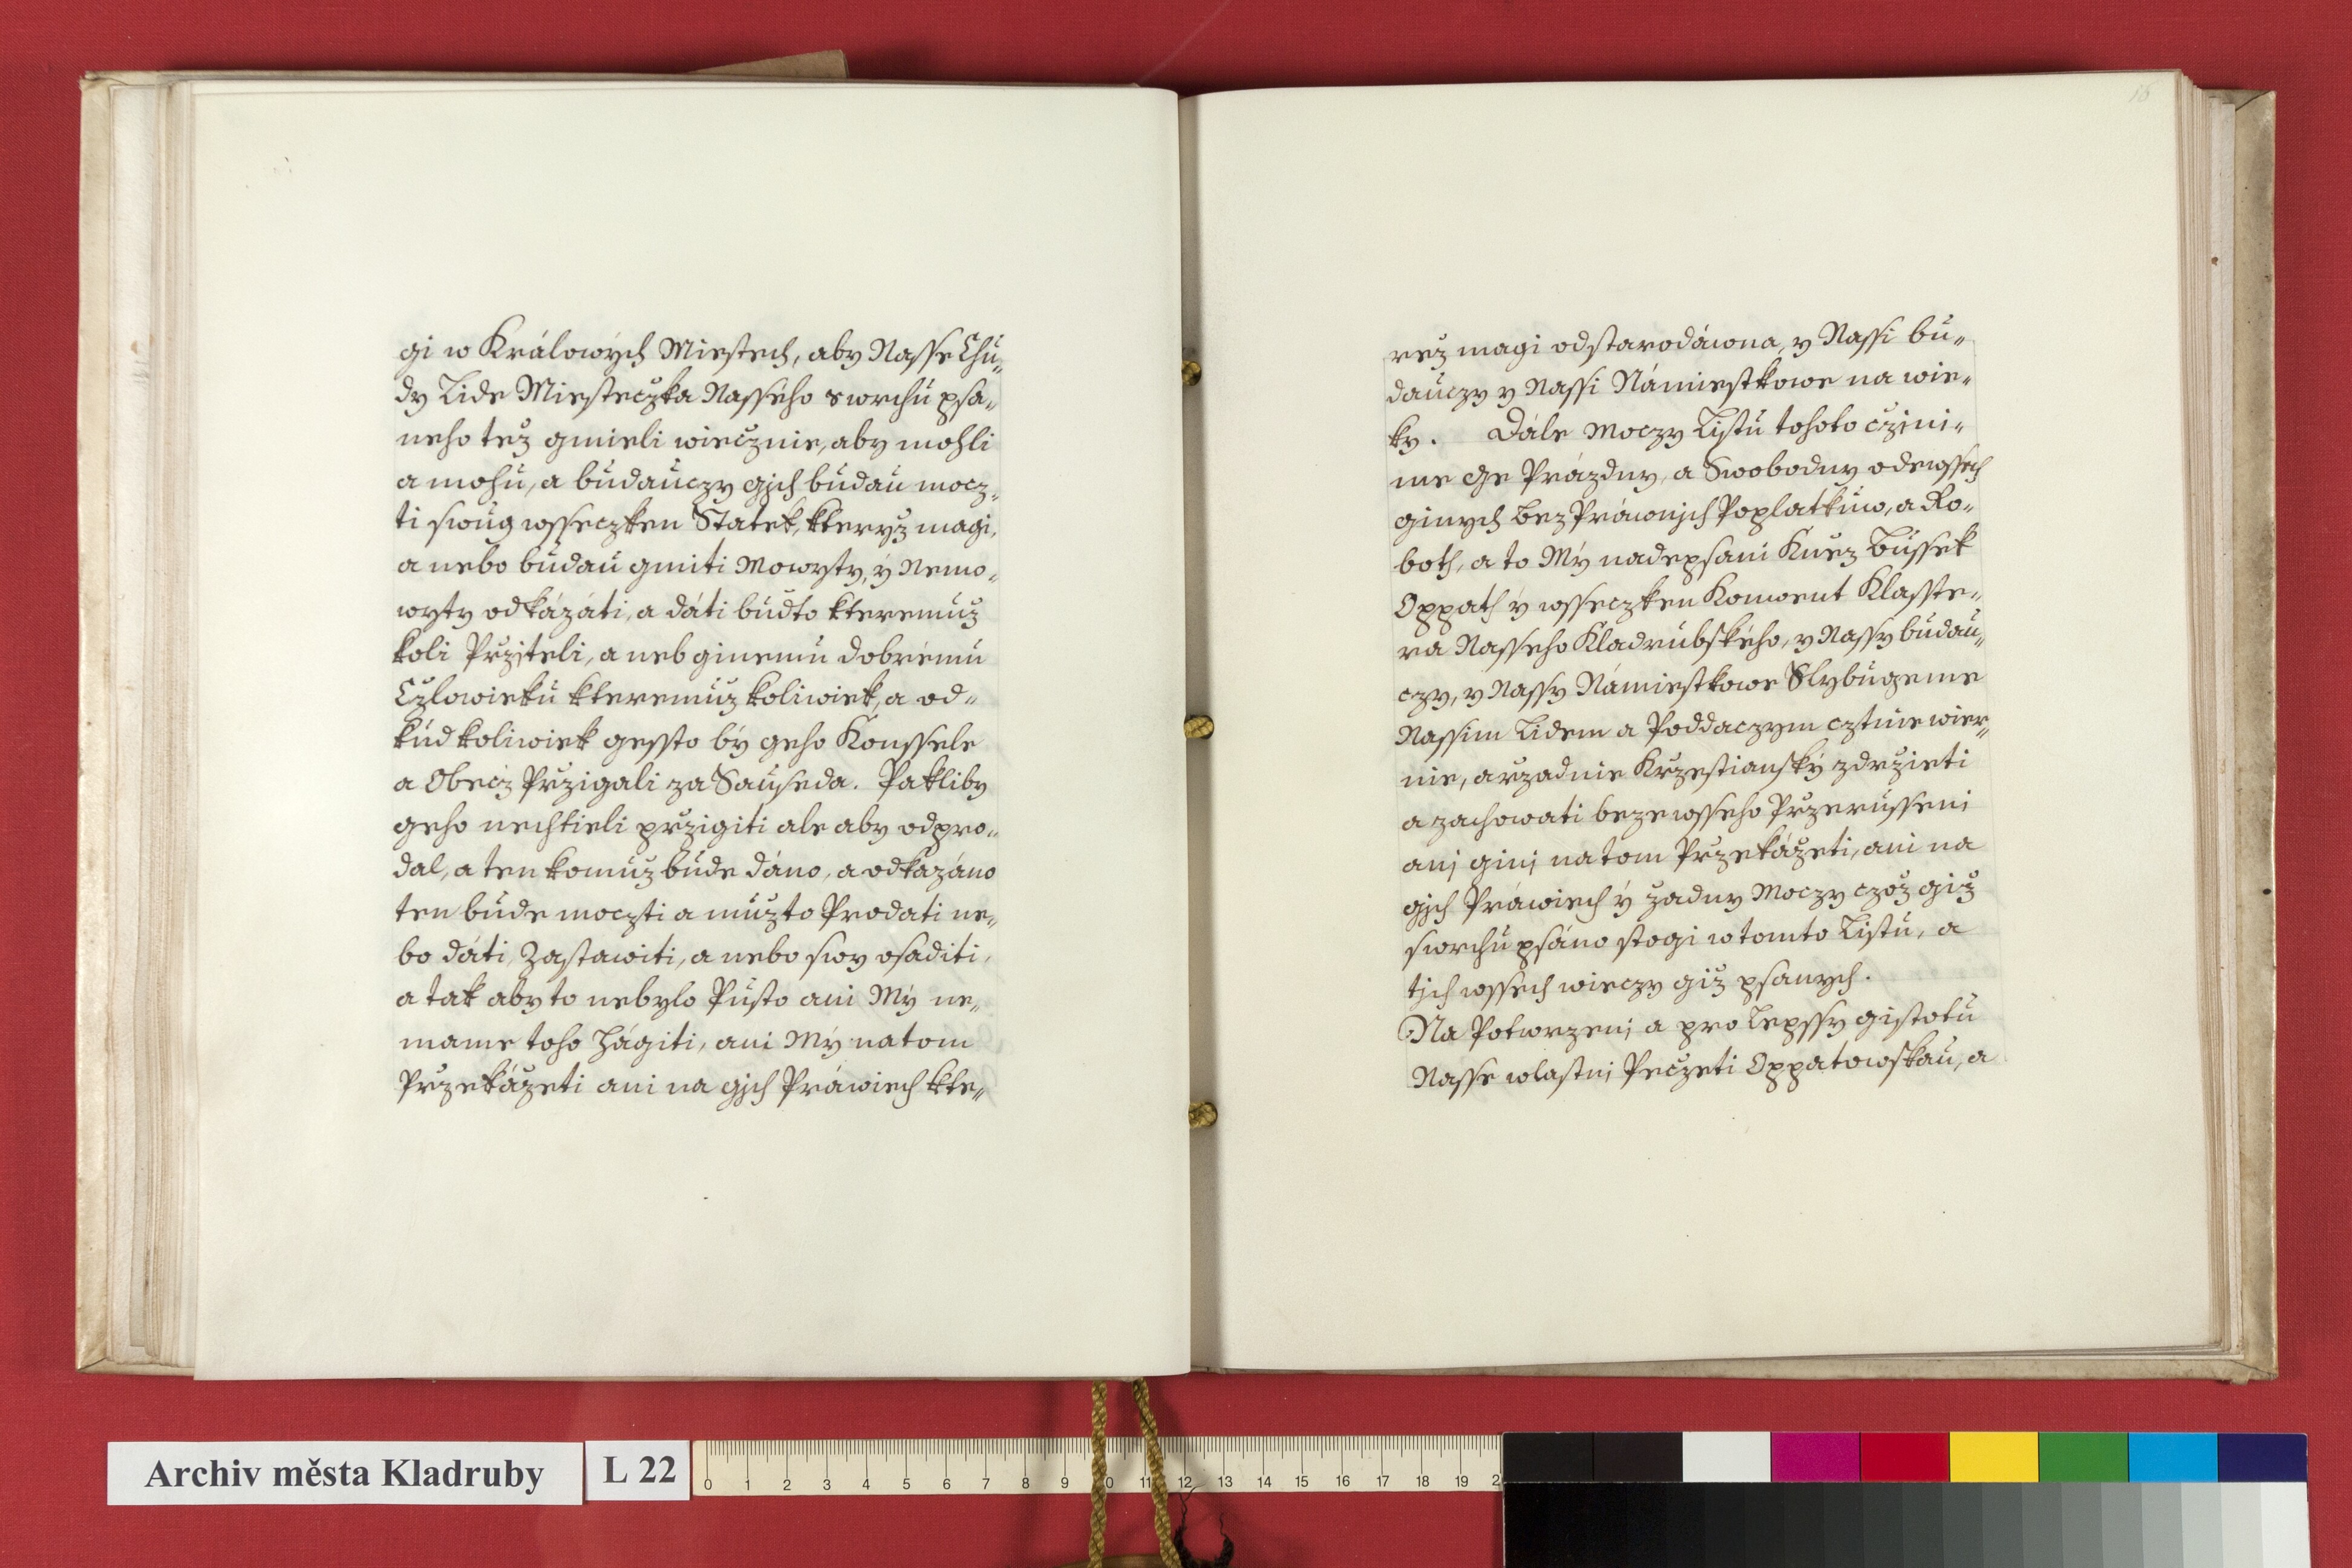 gi w Králowých Miestech, aby Nasse Chu„
dy Lide Miesteczka Nasseho swrchu psa„
neho tez gmieli wiecznie, aby mohli
a mohu, a budauczy gjch budau mocz„
ti swug wsseczken Statek, kteryz magi,
a nebo budau gmiti Mowyty, ý Nemo„
wyty odkázáti, a dáti budto kteremuz
koli Przjteli, a neb ginemu dobrému
Czlowieku kteremuz koliwiek, a od„
kud koliwiek gessto bý geho Konssele
a Obecz Przigali za Sauseda. Pakliby
geho nechtieli przigiti ale aby odpro„
dal, a ten komuz bude dáno, a odkazáno
ten bude moczti a muz to Prodati ne„
bo dáti, Zastawiti, a nebo swy osaditi,
a tak aby to nebylo Pusto ani Mý ne„
mame toho Hágiti, ani Mý na tom
Przekážeti ani na gjch Práwiech kte„
16
rez magi odstarodáwna, y Nassi bu„
dauczy y Nassi Námiestkowe na wie„
ky. Dále Moczy Listu tohoto czini„
me Ge Prázdny, a Swobodny odewssech
ginych bez Práwnjch Poplatkuw, a Ro„
both, a to Mý nadepsani Knez Bussek
Oppath ý wsseczken Konwent Klasste„
ra Nasseho Kladrubského, y Nassy budau„
czy, y Nassy Námiestkowe Slybugeme
Nassim Lidem a Poddaczym cztnie wier„
nie, a rzadnie Krzestiansky zdrzieti
a zachowati beze wsseho Przerusseni
anj ginj na tom Przekážeti, ani na
gjch Práwiech ý zadny Moczy czoz giz
swrchu psáno stogi w tomto Listu, a
tjch wssech wieczy giz psanych.
Na Potwrzenj a pro Lepssy gistotu
Nasse wlastnj Peczeti Oppatowskau, a
Archiv města Kladruby
L 22
0 1 2 3 4 5 6 7 8 9 0 11 12 13 14 15 16 17 18 19 2